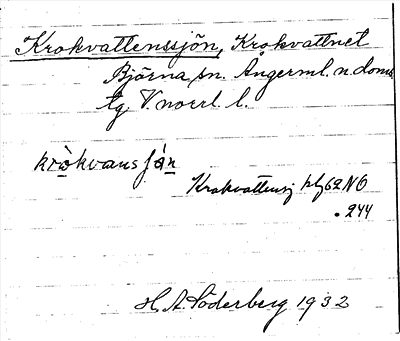 Krokvattenssjön, Krokvattnet
Björna sn. Ångerml. n. doms.
tg. V. norrl. l.
kròkvans ʃø̀n
Krokvattensj kbl 62 NO
• 244
H. A. Söderberg 1932